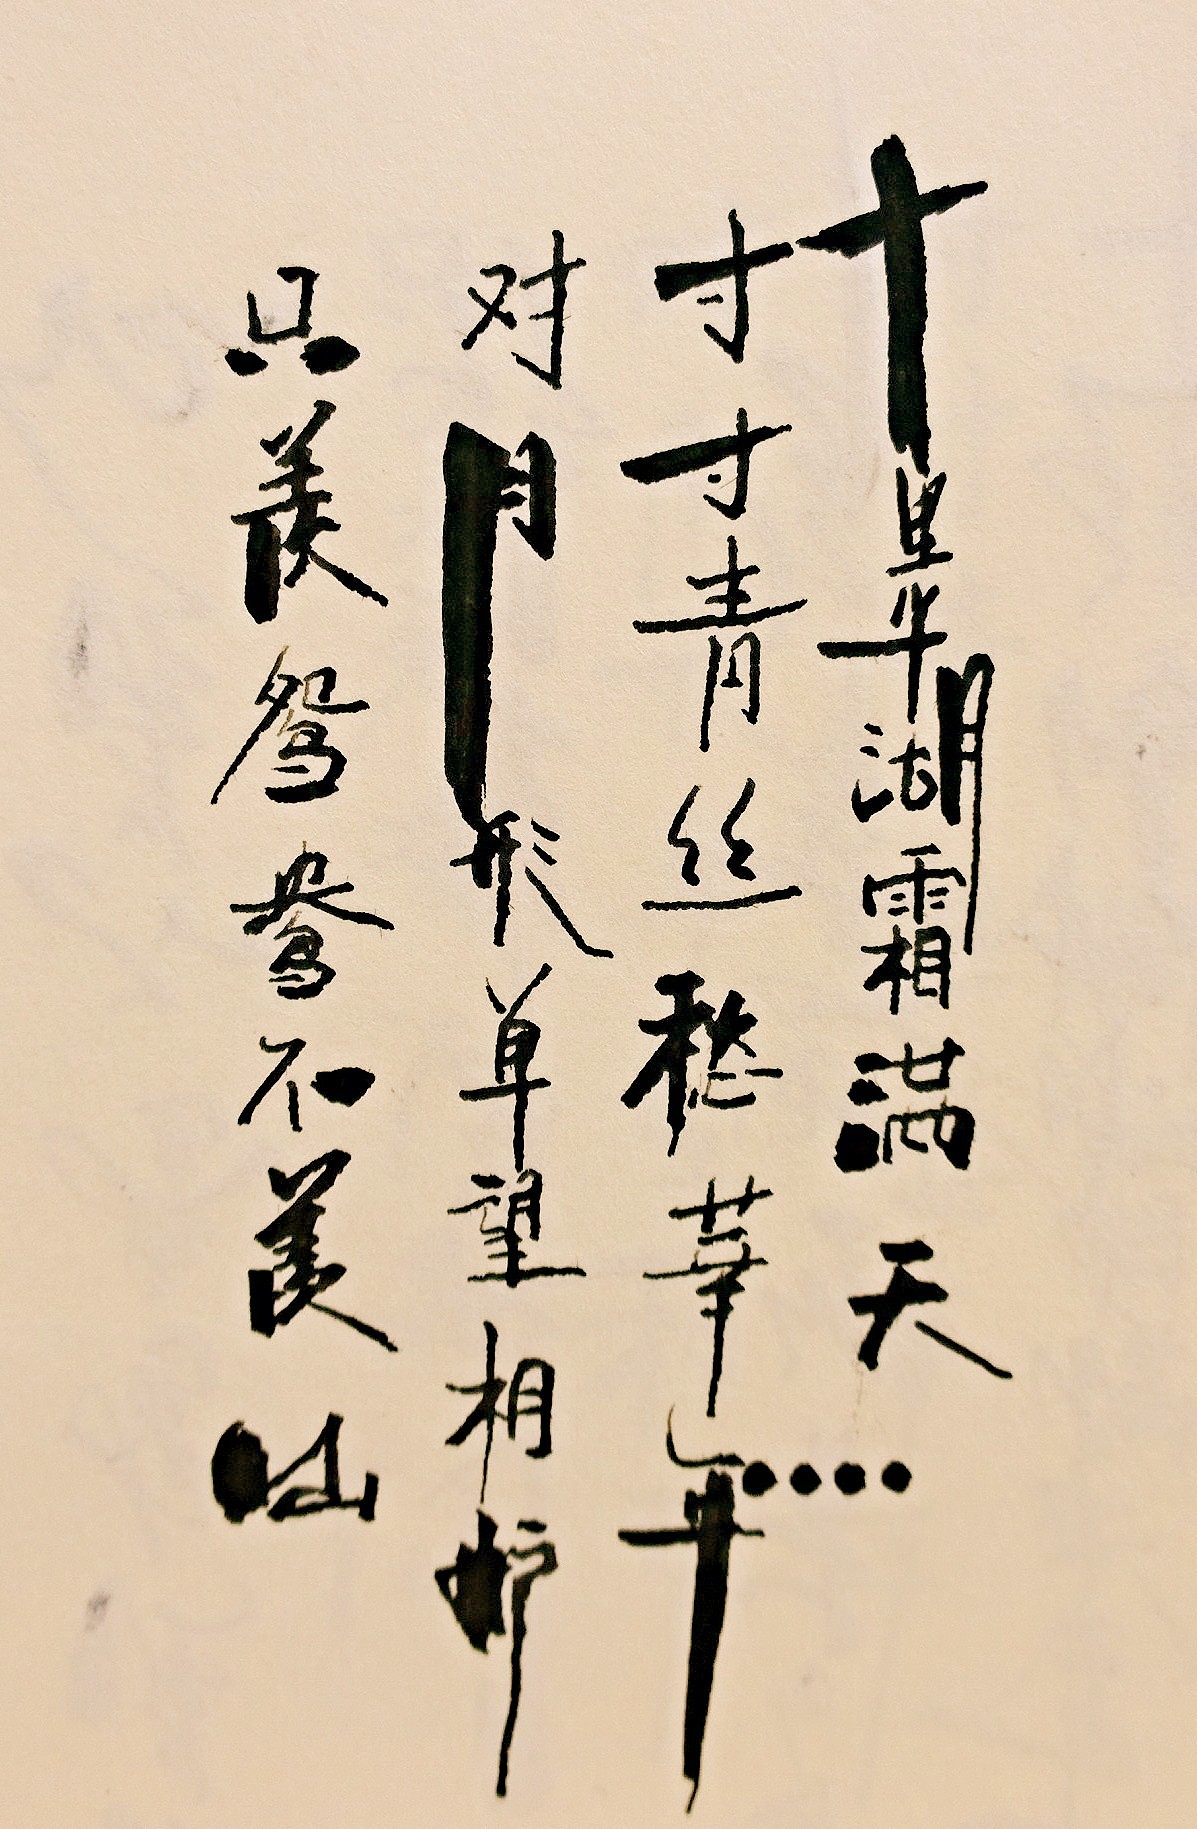 十里平湖霜满天
寸寸青丝愁華年
对月形单望相护
只羡鸳鸯不羡仙